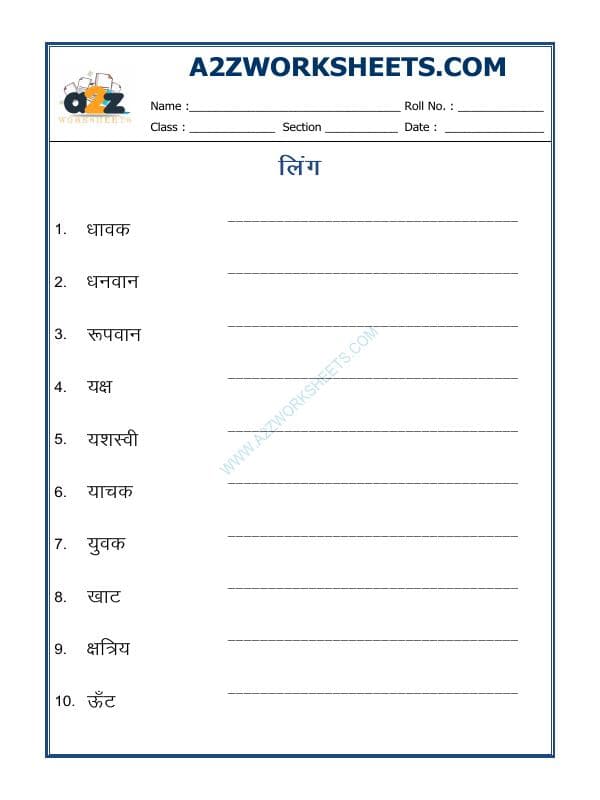 A2ZWORKSHEETS.COM
a2z
WORKSHEETS
Name :________________________________ Roll No. : _____________
Class : _____________ Section ___________ Date : _______________
लिंग
1. धावक ____________________________________
2. धनवान ____________________________________
3. रूपवान ____________________________________
4. यक्ष ____________________________________
5. यशस्वी ____________________________________
6. याचक ____________________________________
7. युवक ____________________________________
8. खाट ____________________________________
9. क्षत्रिय ____________________________________
10. ऊँट ____________________________________
WWW.A2ZWORKSHEETS.COM